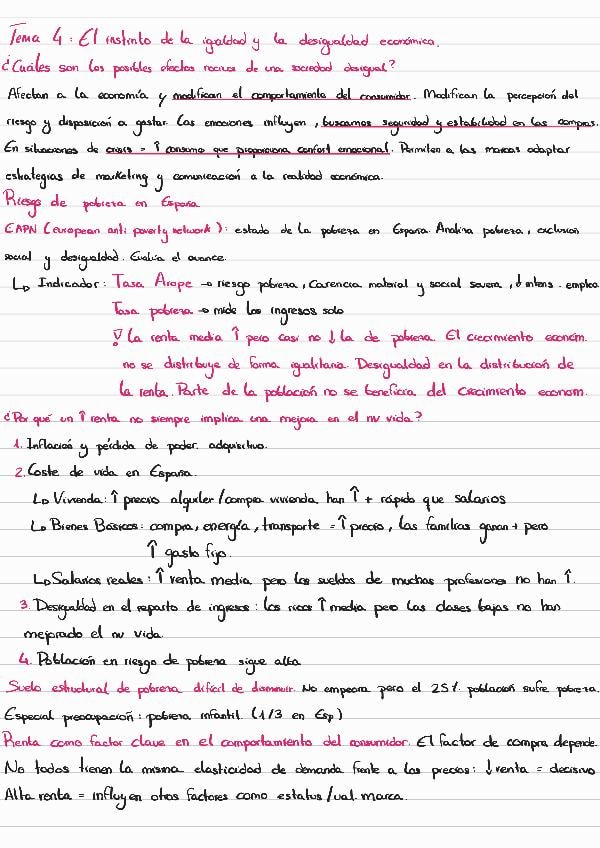 Tema 4: El instinto de la igualdad y la desigualdad económica.
¿Cuáles son los posibles efectos nocivos de una sociedad desigual?
Afectan a la economía y modifican el comportamiento del consumidor. Modifican la percepción del
riesgo y disposición a gastar. Las emociones influyen, buscamos seguridad y estabilidad en las compras.
En situaciones de crisis = ↑ consumo que proporciona confort emocional. Permiten a las marcas adaptar
estrategias de marketing y comunicación a la realidad económica.
Riesgo de pobreza en España
EAPN (european anti poverty network): estado de la pobreza en España. Analiza pobreza, exclusión
social y desigualdad. Evalúa el avance.
↳ Indicador: Tasa Arope → riesgo pobreza, Carencia material y social severa, ↓ intens. empleo
Tasa pobreza → mide los ingresos solo
! La renta media ↑ pero casi no ↓ la de pobreza. El crecimiento económ.
no se distribuye de forma igualitaria. Desigualdad en la distribución de
la renta. Parte de la población no se beneficia del crecimiento económ.
¿Por qué un ↑ renta no siempre implica una mejora en el nv vida?
1. Inflación y pérdida de poder adquisitivo.
2. Coste de vida en España.
↳ Vivienda: ↑ precio alquiler/compra vivienda han ↑ + rápido que salarios
↳ Bienes Básicos: compra, energía, transporte = ↑ precio, las familias ganan + pero
↑ gasto fijo.
↳ Salarios reales: ↑ renta media pero los sueldos de muchas profesiones no han ↑.
3. Desigualdad en el reparto de ingresos: los ricos ↑ media pero las clases bajas no han
mejorado el nv vida.
4. Población en riesgo de pobreza sigue alta
Suelo estructural de pobreza difícil de disminuir. No empeora pero el 25% población sufre pobreza.
Especial preocupación: pobreza infantil (1/3 en Esp)
Renta como factor clave en el comportamiento del consumidor. El factor de compra depende.
No todos tienen la misma elasticidad de demanda frente a los precios: ↓ renta = decisivo
Alta renta = influyen otros factores como estatus/val. marca.